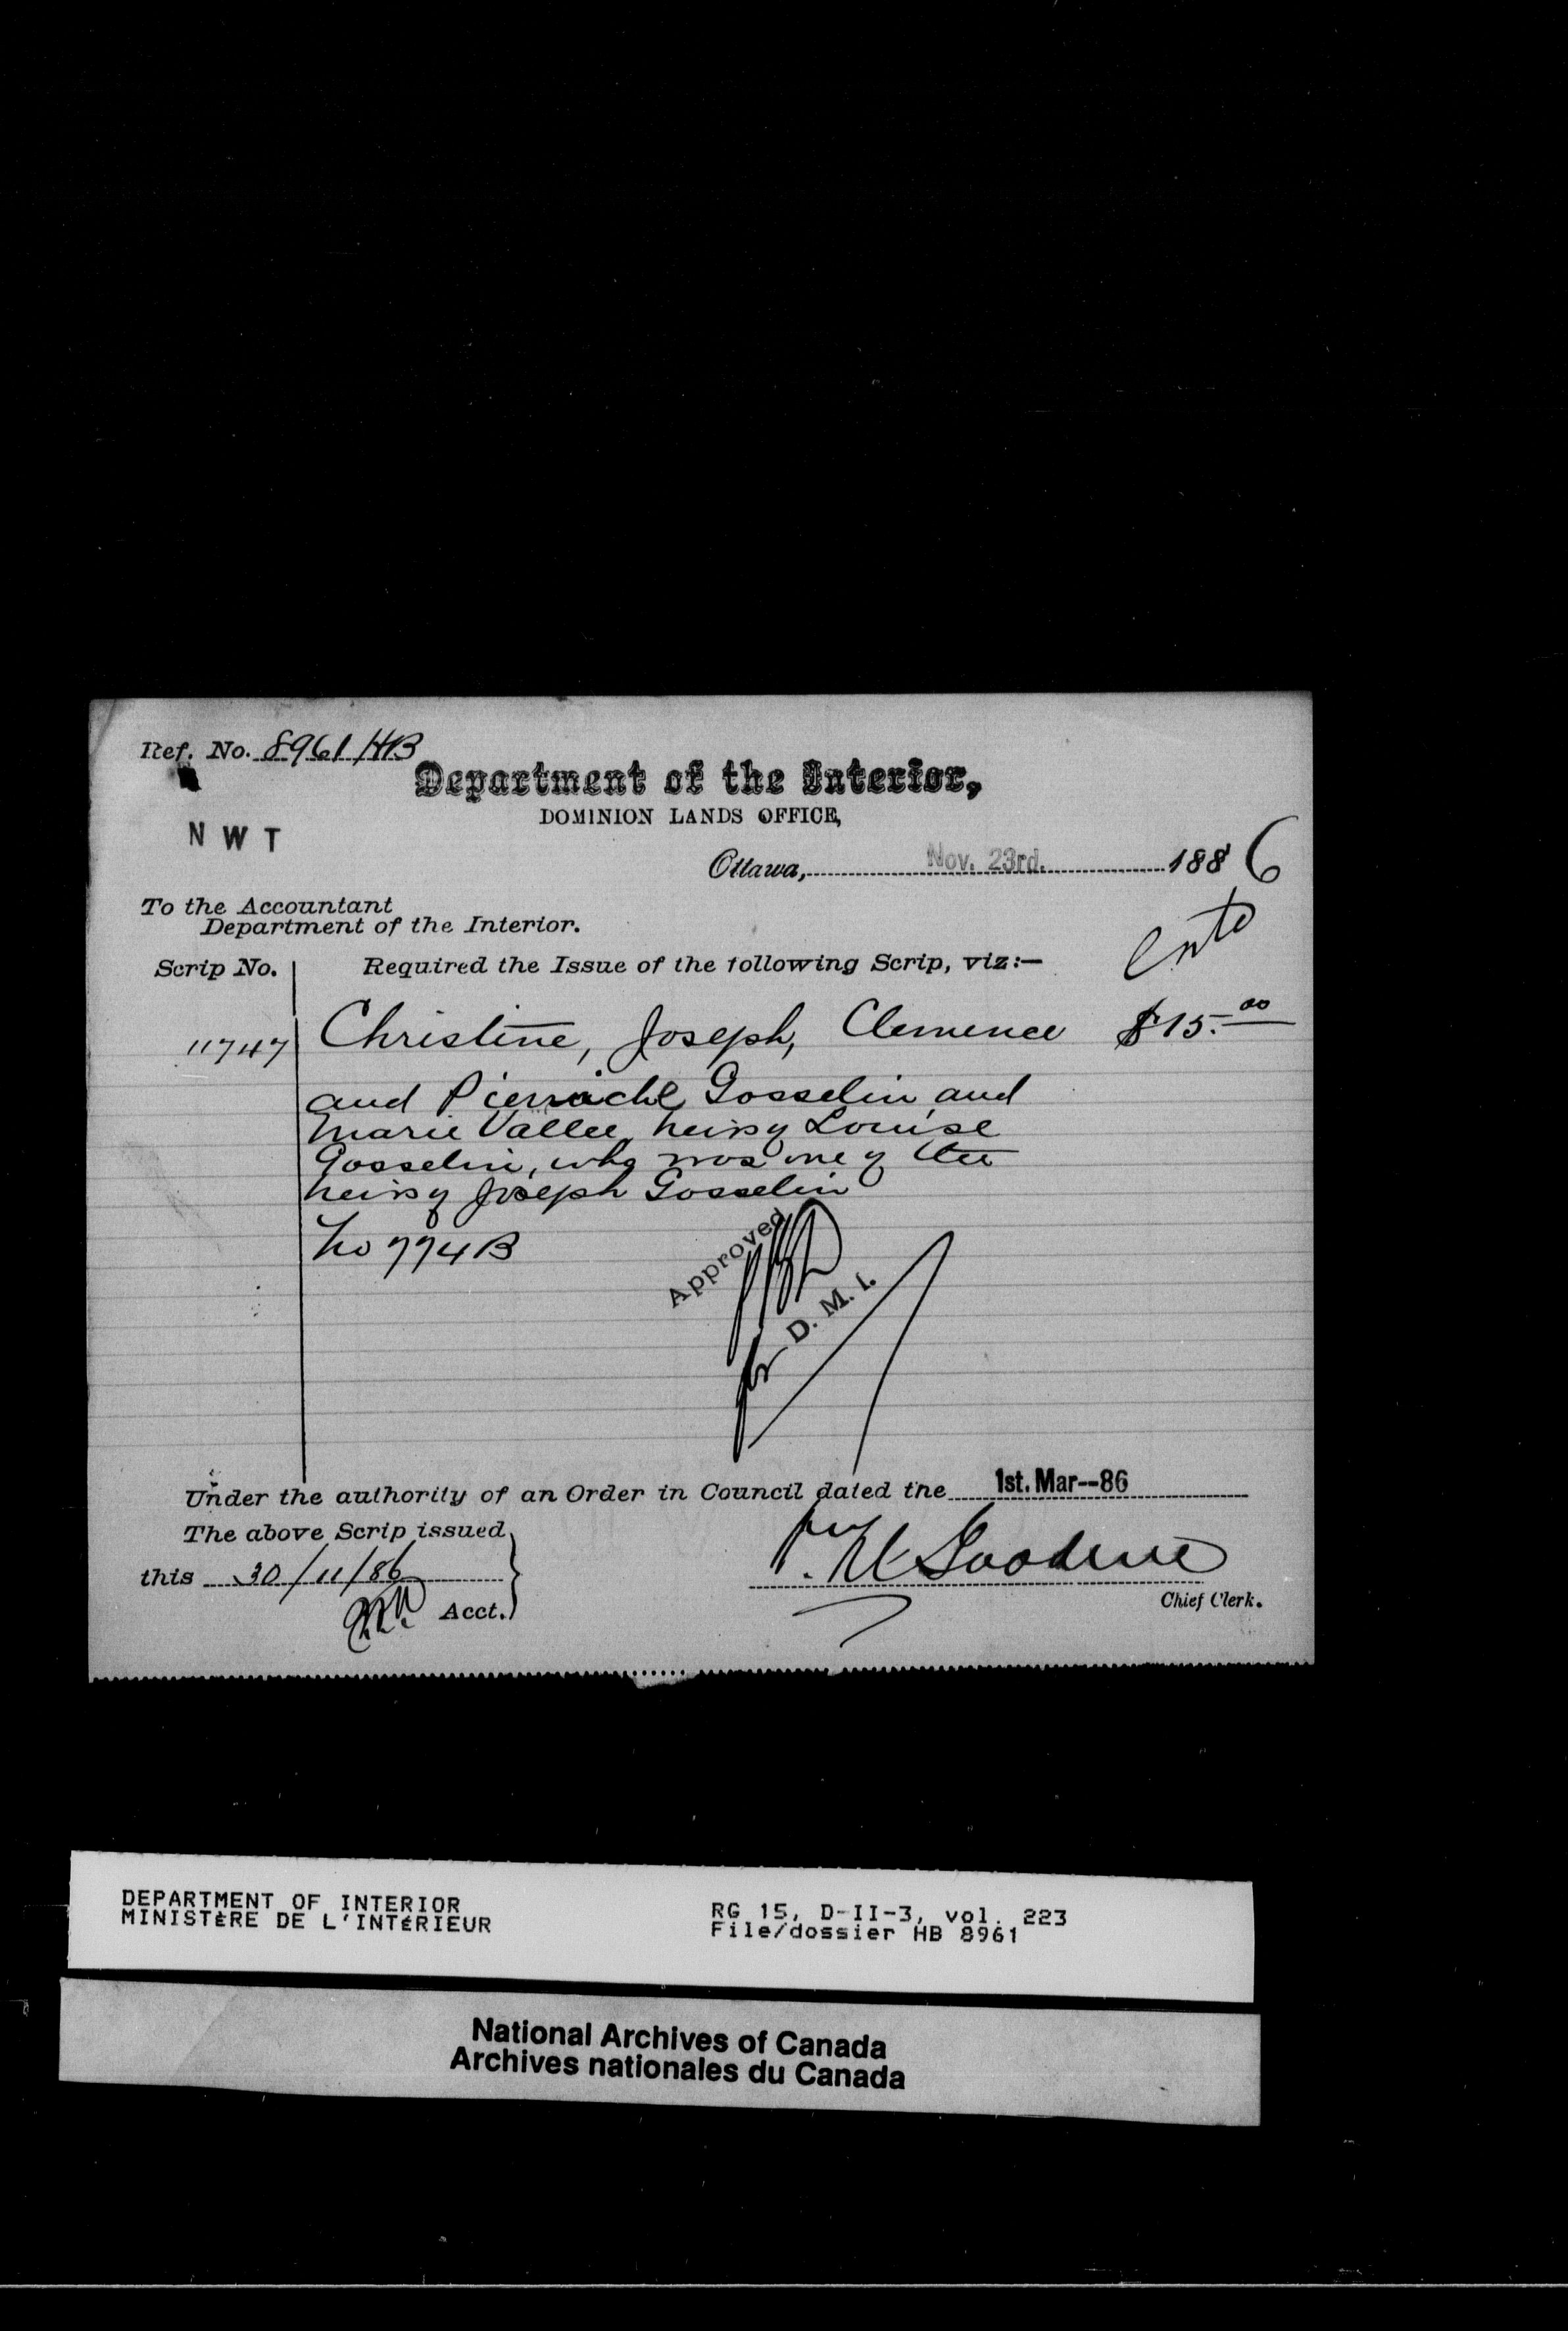 Ref. No. 8961 HB
Department of the Interior,
DOMINION LANDS OFFICE,
N W T
Ottawa, Nov. 23rd. 1886
To the Accountant
Department of the Interior.
Scrip No. Required the Issue of the following Scrip, viz:—
11747 Christine, Joseph, Clemence $15.00
and Gosselin and
Marie Vallee, heirs of Louise
Gosselin, who was one of the
heirs of Joseph Gosselin
No 774 B
Approved
for D. M. I.
Under the authority of an Order in Council dated the 1st. Mar--86
The above Scrip issued
this 30/11/86
Acct.
Chief Clerk.
DEPARTMENT OF INTERIOR
MINISTÈRE DE L'INTÉRIEUR
RG 15, D-II-3, vol. 223
File/dossier HB 8961
National Archives of Canada
Archives nationales du Canada